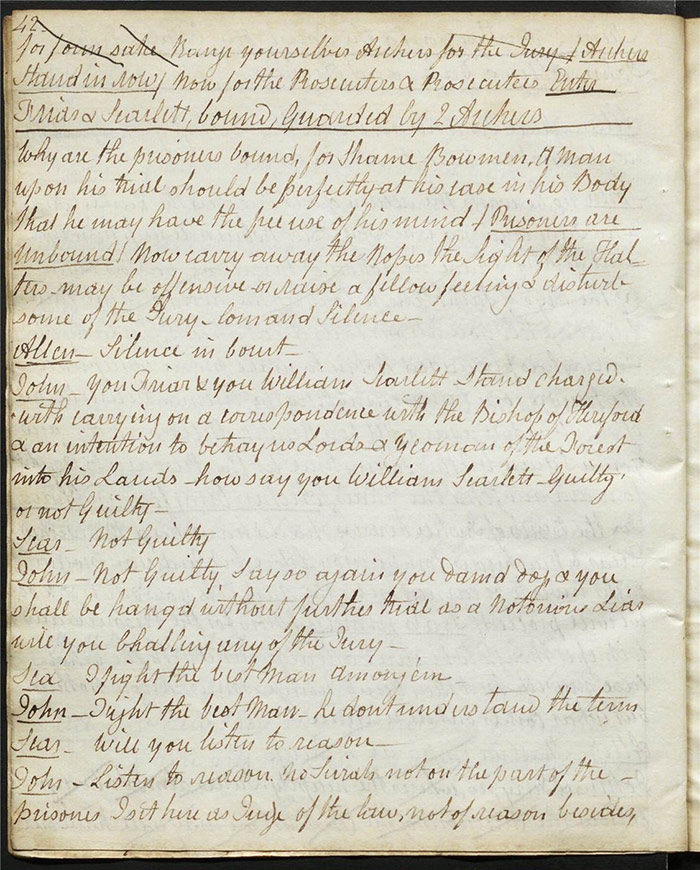 42
for form sake Range yourselves Archers for the Jury / Archers
Stand in row / Now for the Prosecuters & Prosecutees Enter
Friar & Scarlett, bound, Guarded by 2 Archers
Why are the prisoners bound, for Shame Bowmen, A man
upon his trial should be perfectly at his ease in his Body
that he may have the free use of his mind / Prisoners are
unbound / Now carry away the Ropes the sight of the Hal-
ters may be offensive or raise a fellow feeling & disturb
some of the Jury – comand Silence –
Allen – Silence in Court –
John – you Friar & you William Scarlett Stand charged
with carrying on a correspondence with the Bishop of Hereford
& an intention to betray us Lords & Yeoman of the Forest
into his Lands – how say you William Scarlett – Guilty
or not Guilty –
Scar – Not Guilty
John – Not Guilty Say so again you damd dog & you
shall be hang'd without further trial as a Notorious Liar
will you Challing any of the Jury –
Sca I fight the best Man among em
John – Fight the best Man – he dont understand the term
Scar – Will you listen to reason –
John – Listen to reason no Sirrah not on the part of the –
prisoner I sit here as Judge of the law, not of reason besides,